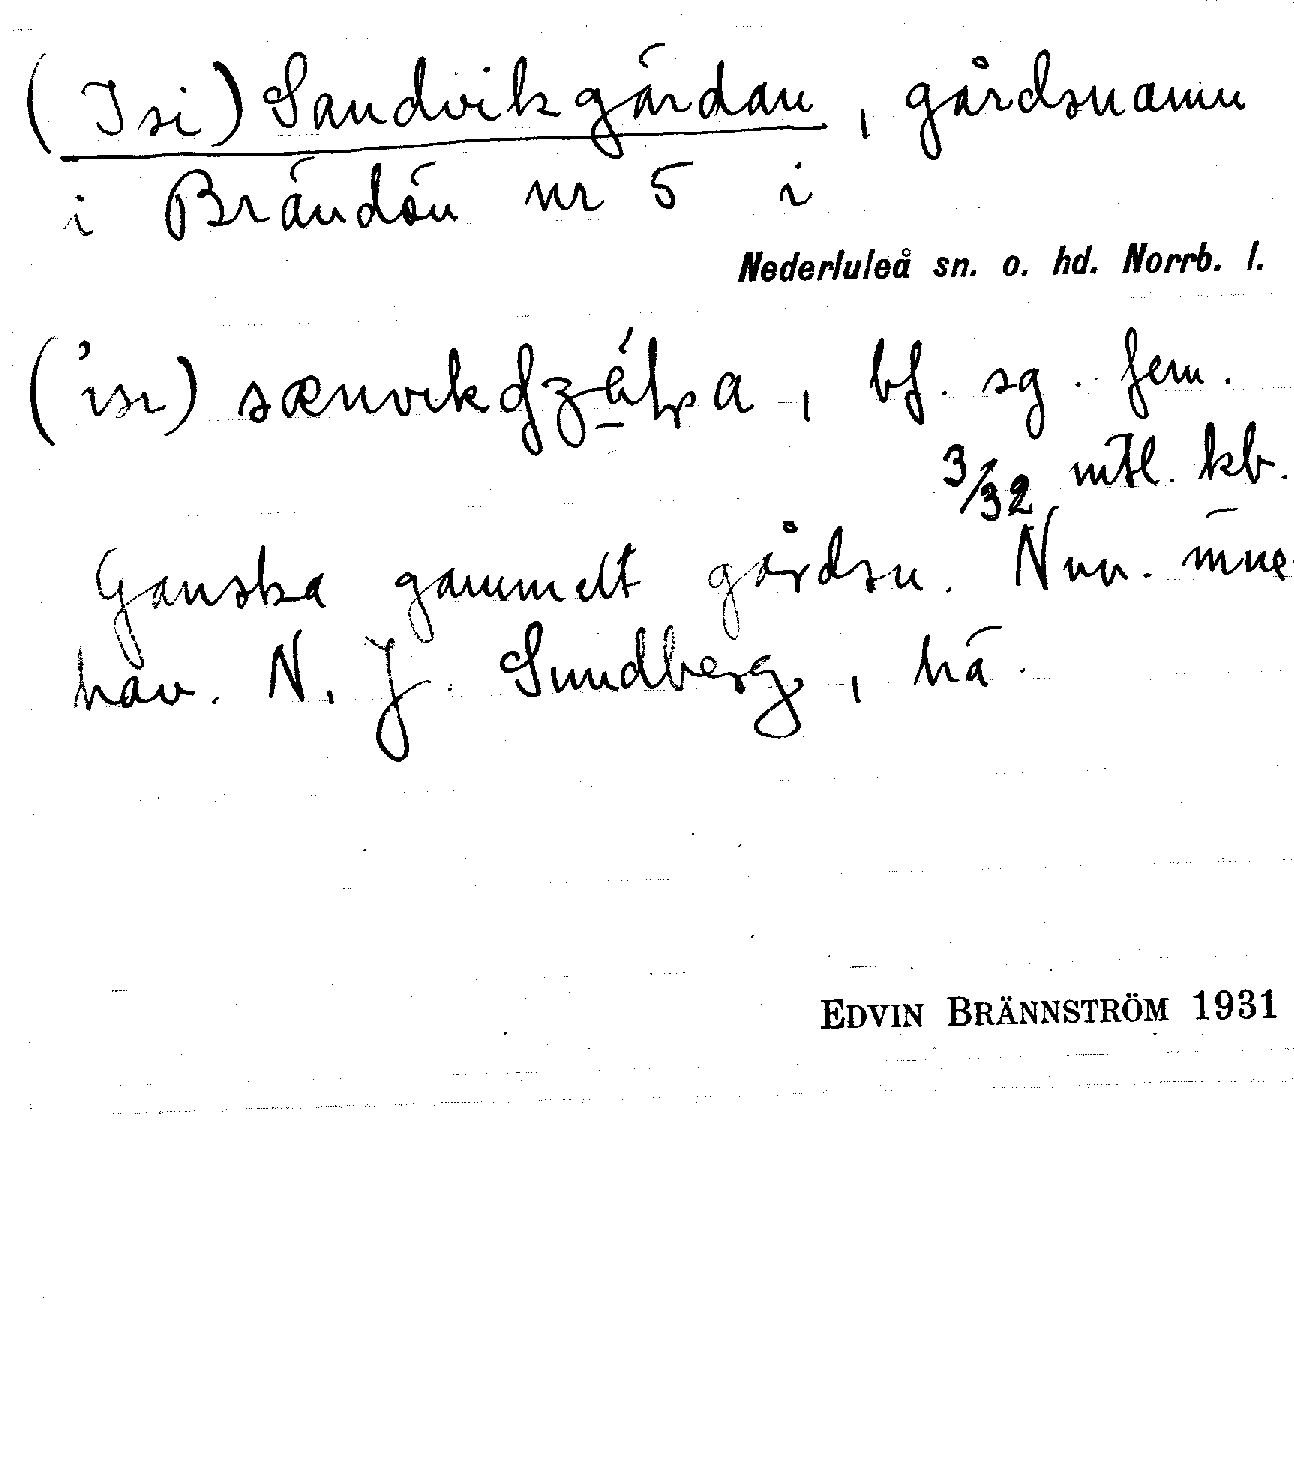 (Isi) Sandvikgärdan, gårdsnamn
i Brändön nr 5 i
Nederluleå sn. o. hd. Norrb. l.
bf. sg. fem.
3/32 mtl. kb.
Ganska gammelt gårdsn. Nuv. inne
hav. N. J. Sundberg, hä.
EDVIN BRÄNNSTRÖM 1931